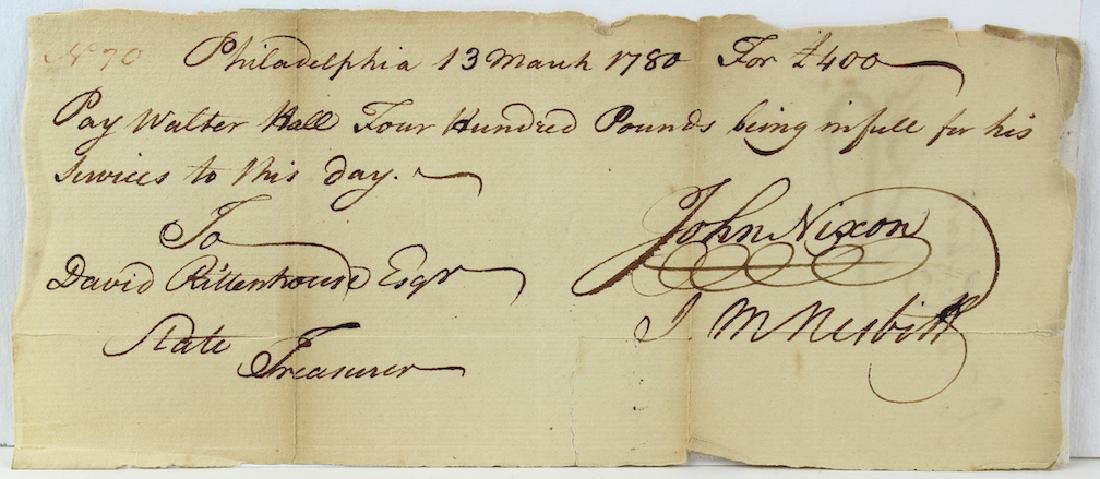 No 70 Philadelphia 13 March 1780 For £400
Pay Walter Hall Four Hundred Pounds being in full for his
Services to this day.
To
David Rittenhouse Esqr
State Treasurer
John Nixon
J M Nesbitt